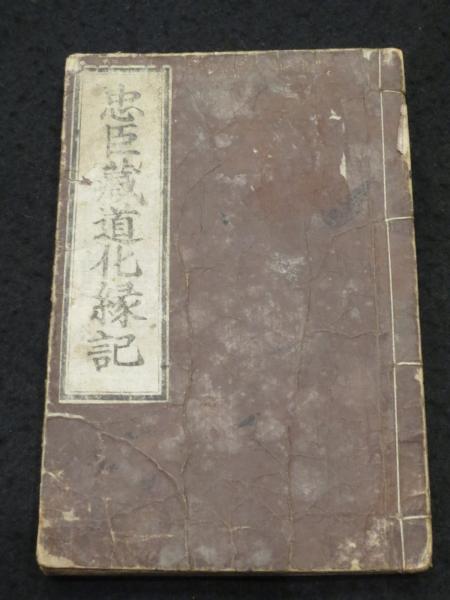 忠臣蔵道化縁記